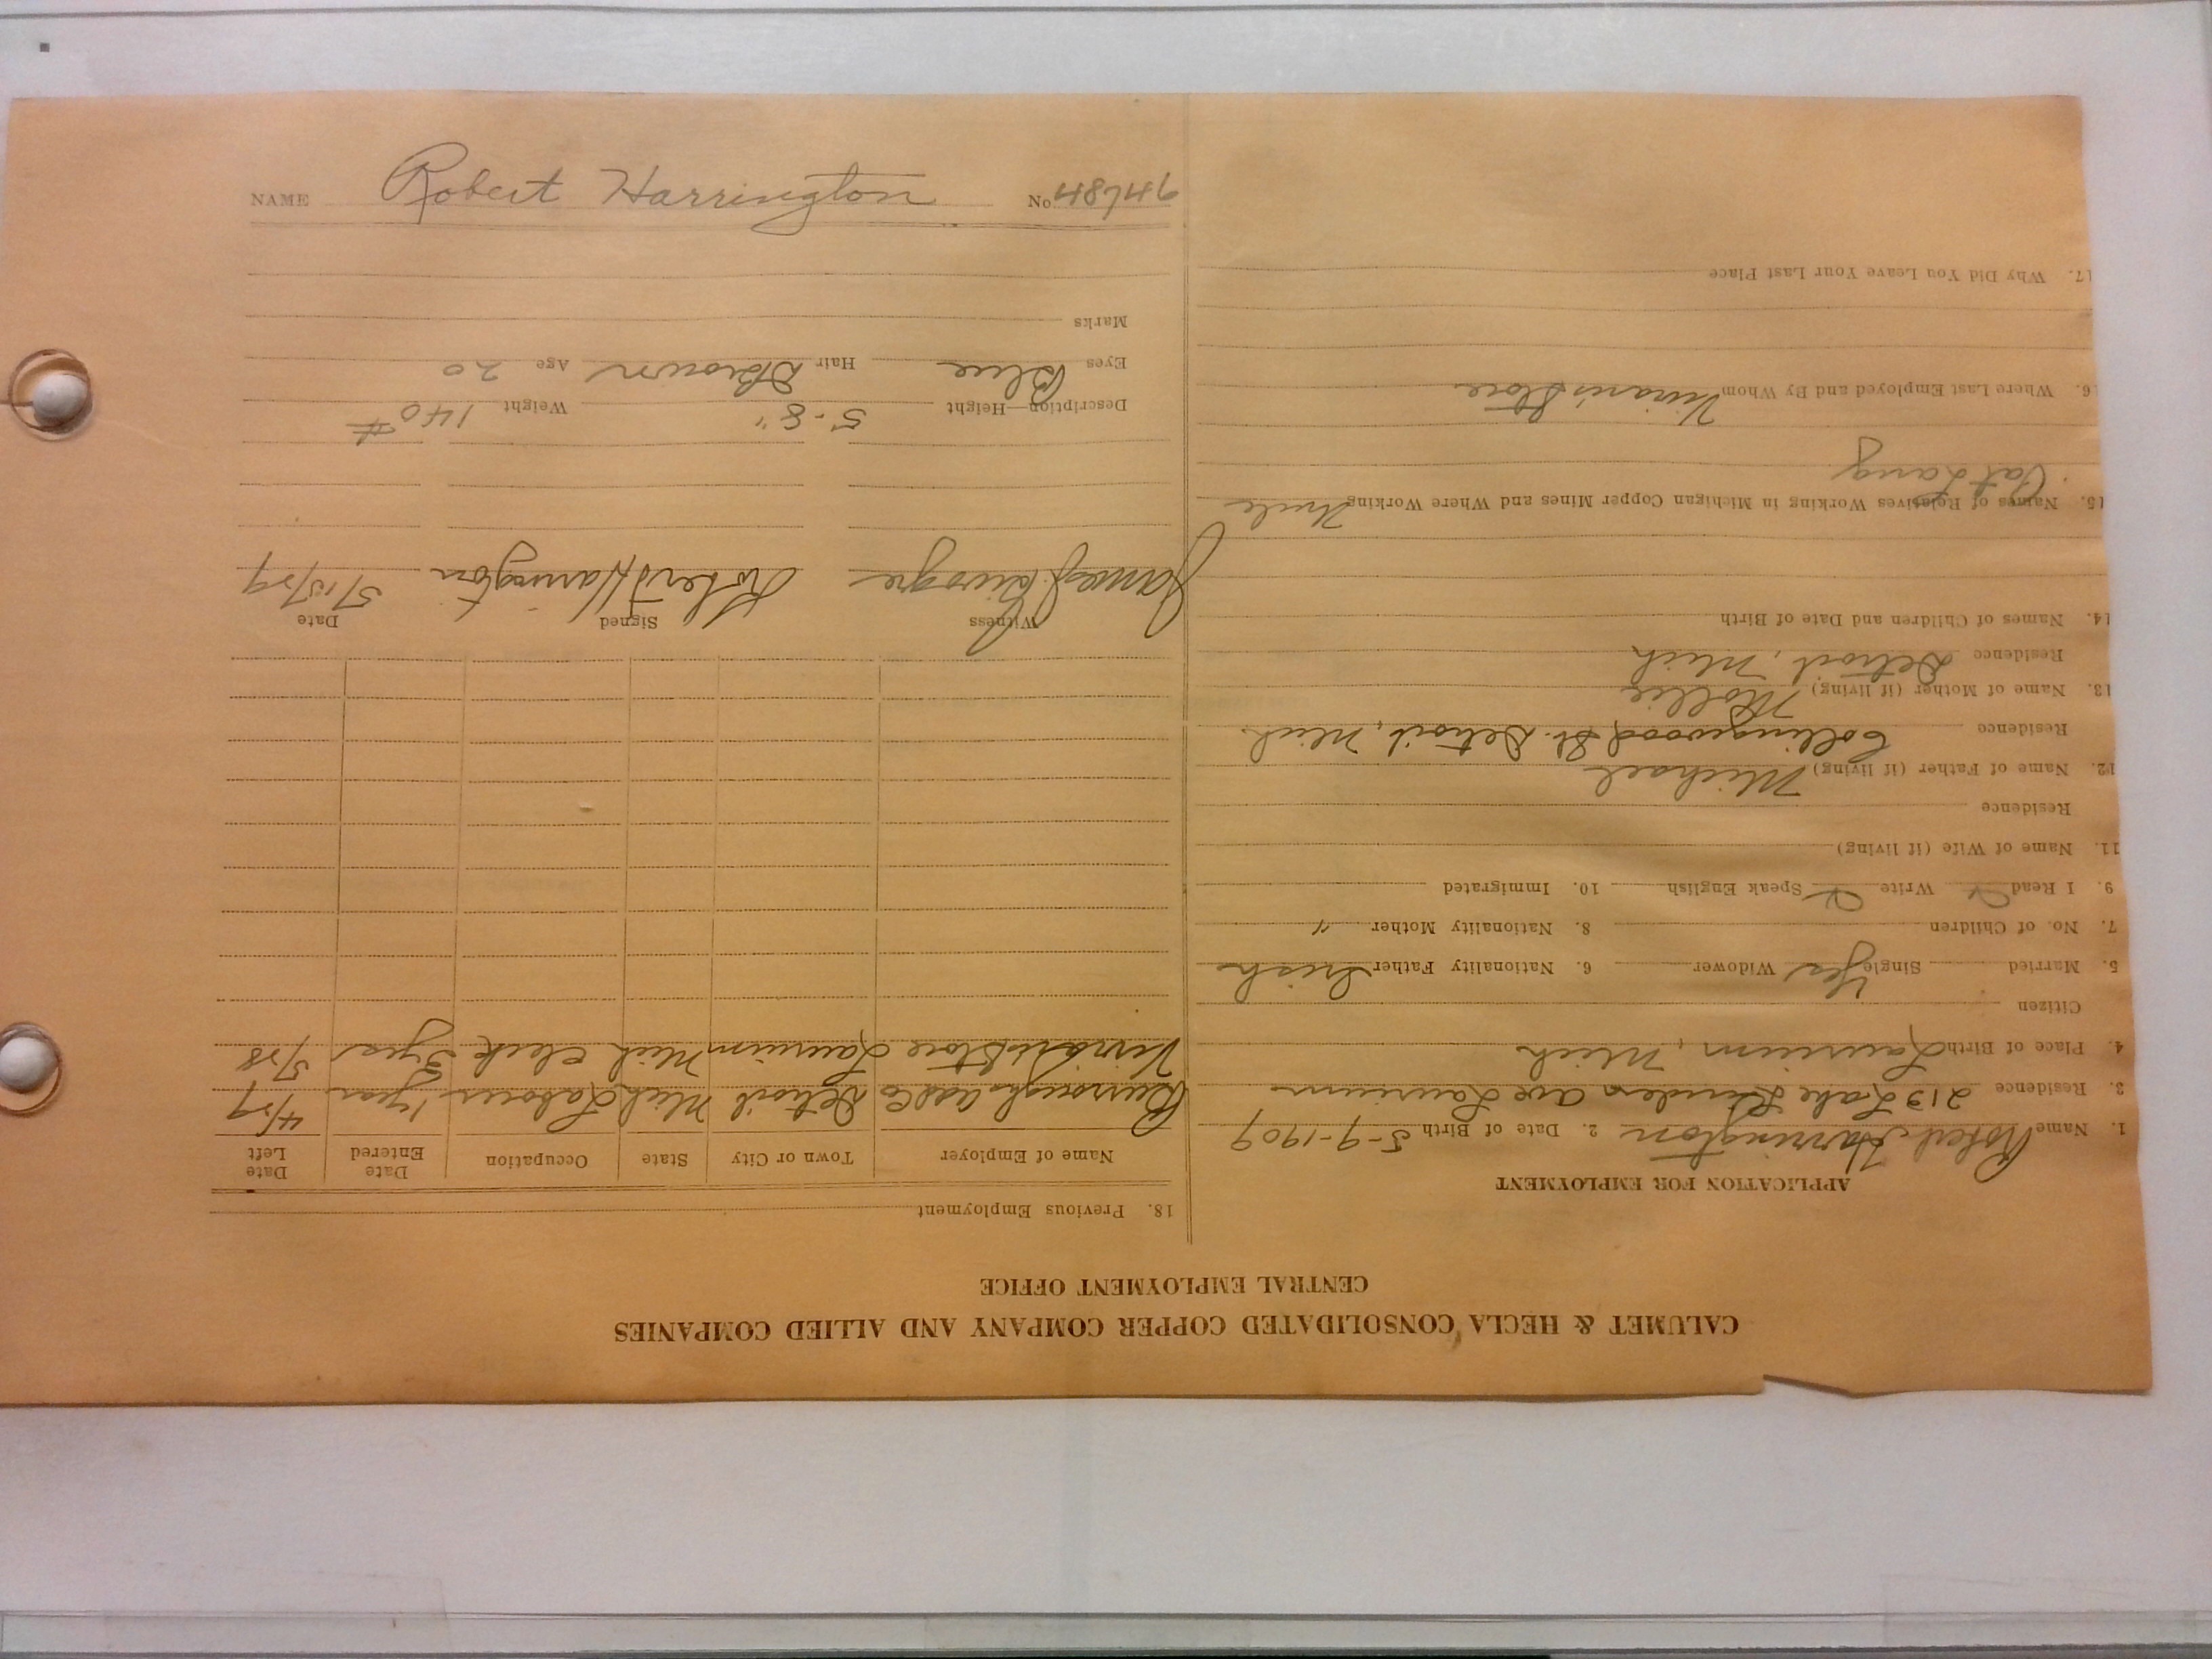 CALUMET & HECLA CONSOLIDATED COPPER COMPANY AND ALLIED COMPANIES
CENTRAL EMPLOYMENT OFFICE
APPLICATION FOR EMPLOYMENT
1. Name Robert Harrington 2. Date of Birth 5-9-1909
3. Residence 213 Lake Linden Ave Laurium
4. Place of Birth Laurium, Mich
Citizen
5. Married Single Yes Widower 6. Nationality Father Irish
7. No. of Children 8. Nationality Mother "
9. I Read Write Speak English 10. Immigrated
11. Name of Wife (if living)
Residence
12. Name of Father (if living) Michael
Residence Collingwood St. Detroit, Mich
13. Name of Mother (if living) Mollie
Residence Detroit, Mich
14. Names of Children and Date of Birth
15. Names of Relatives Working in Michigan Copper Mines and Where Working Uncle
Pat Lang
16. Where Last Employed and By Whom Store
17. Why Did You Leave Your Last Place
18. Previous Employment
Name of Employer Town or City State Occupation Date Entered Date Left
Detroit Mich Laborer 1 year 4/29
Store Laurium Mich Clerk 3 yrs 3/28
Witness Signed Date
James Robert Harrington 5/15/29
Description—Height 5-8" Weight 140#
Eyes Blue Hair Brown Age 20
Marks
NAME Robert Harrington No